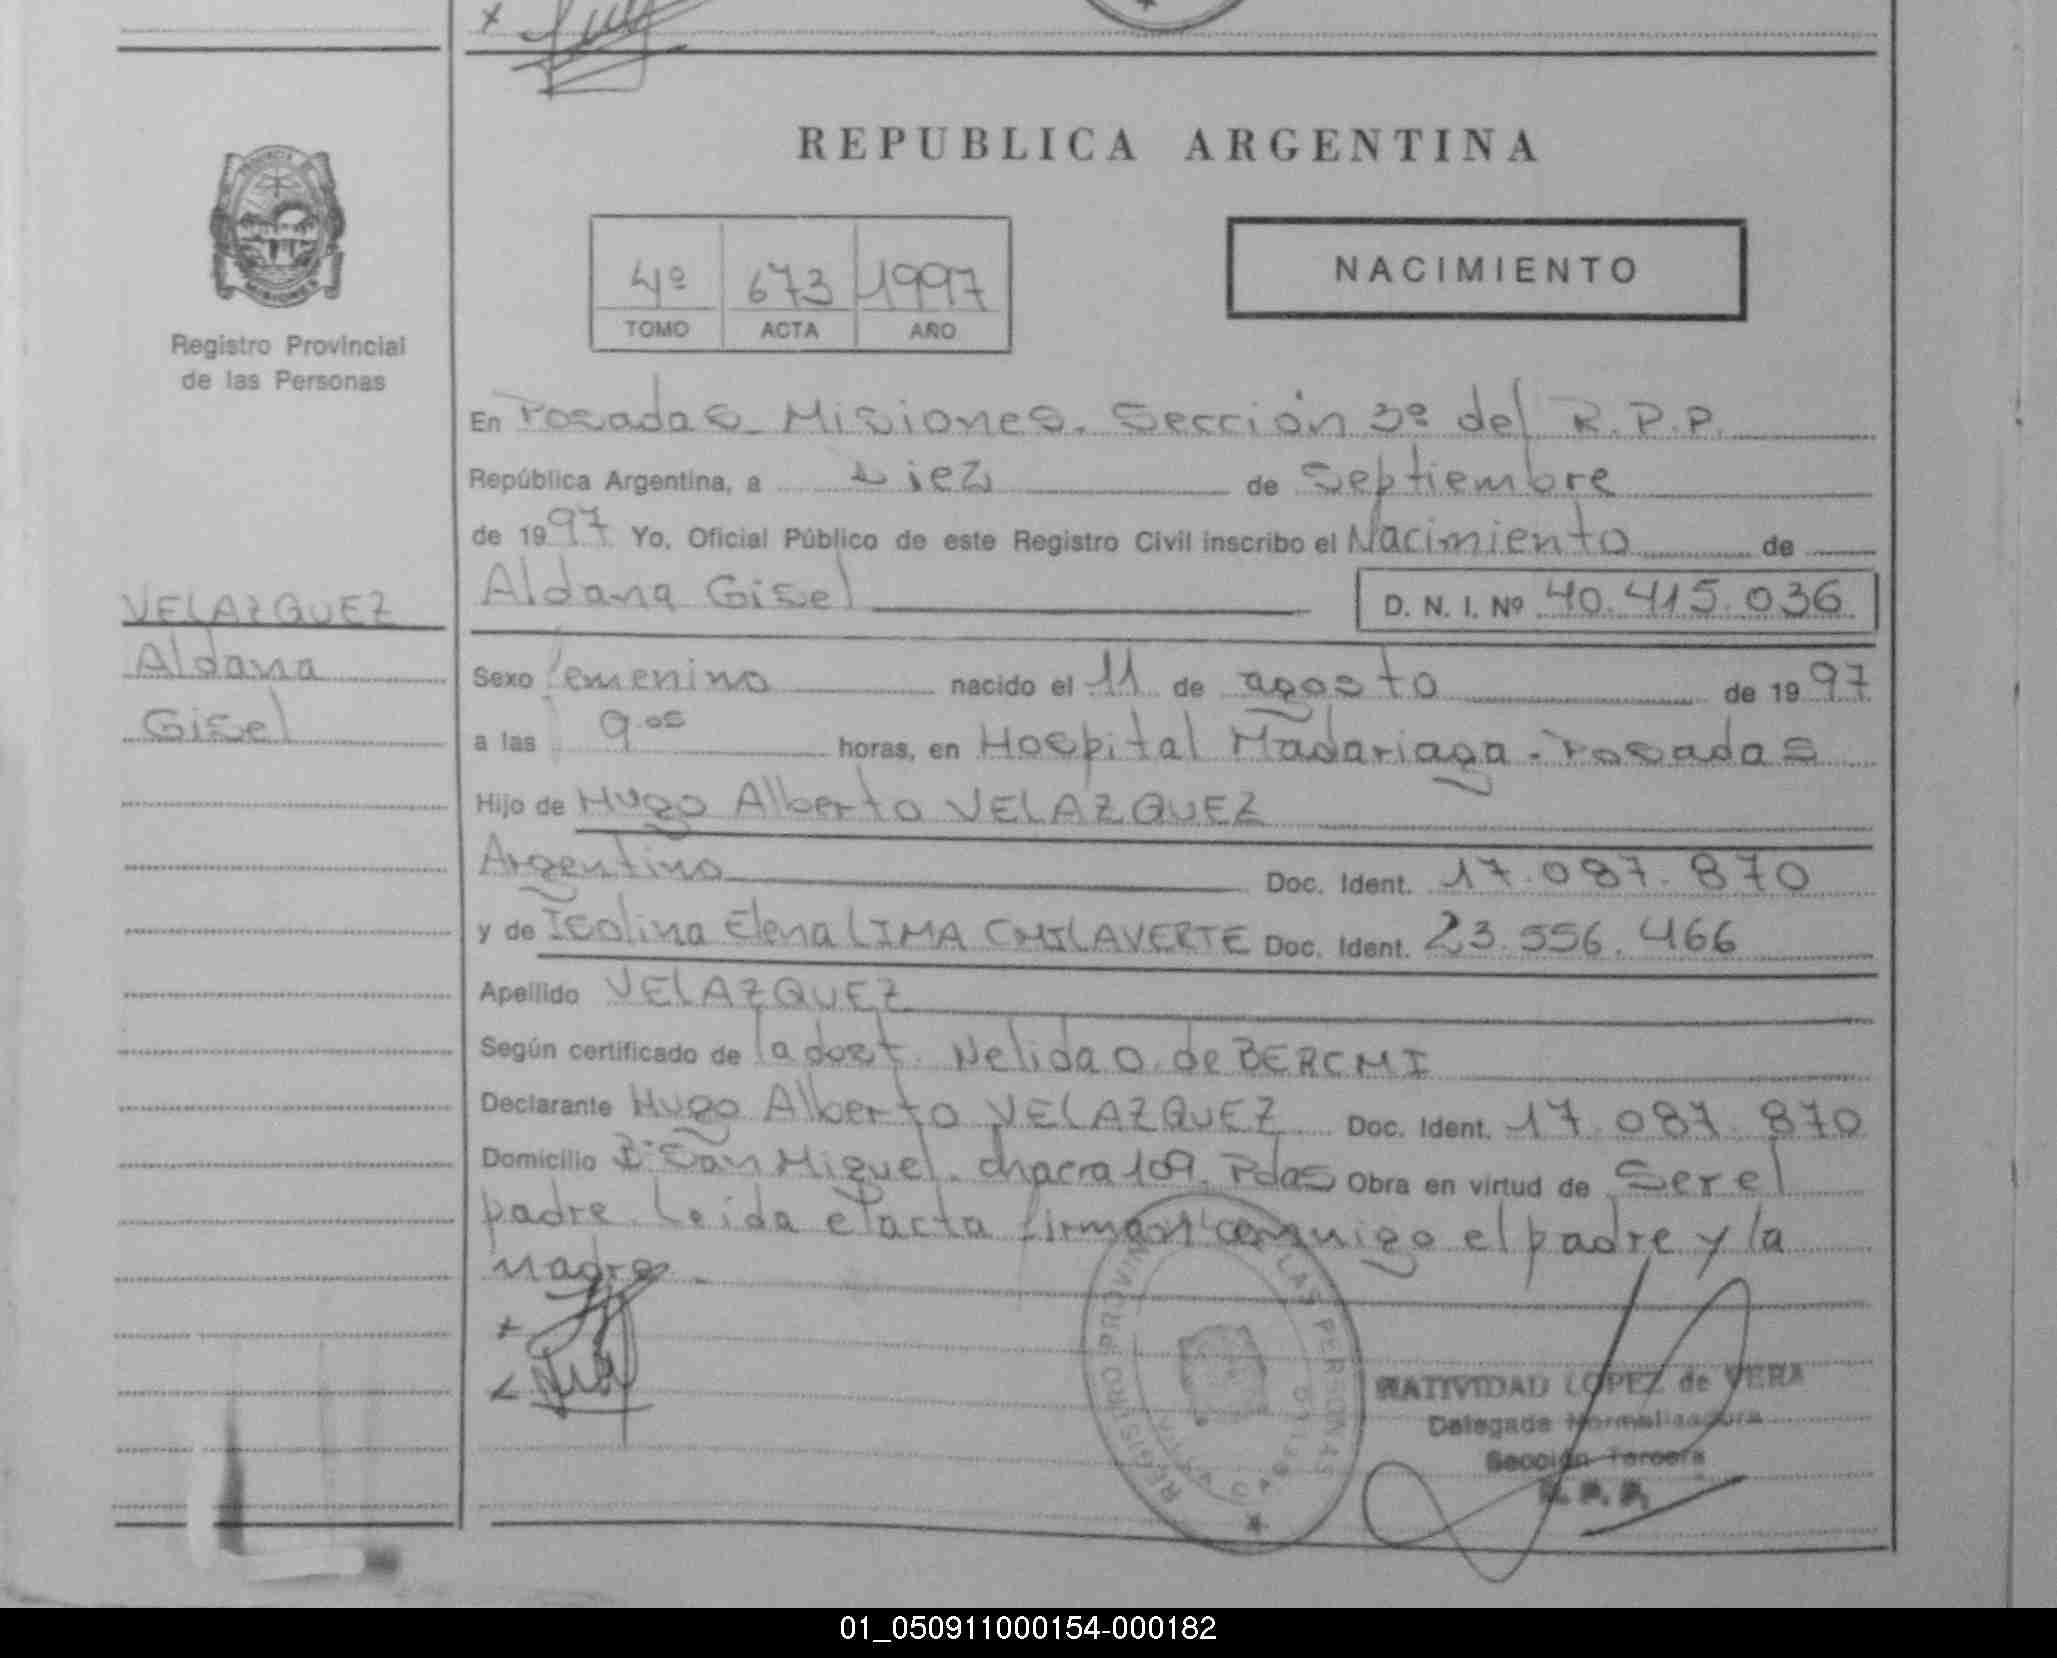 REPUBLICA ARGENTINA
4º 673 1997
TOMO ACTA AÑO
NACIMIENTO
PROVINCIA
MISIONES
Registro Provincial
de las Personas
VELAZQUEZ
Aldana
Gisel
En Posadas Misiones. Sección 3º del R.P.P.
República Argentina, a Diez de Septiembre
de 1997 Yo, Oficial Público de este Registro Civil inscribo el Nacimiento de
Aldana Gisel D. N. I. Nº 40.415.036
Sexo femenino nacido el 11 de agosto de 1997
a las 9.05 horas, en Hospital Madariaga - Posadas
Hijo de Hugo Alberto VELAZQUEZ
Argentino Doc. Ident. 17.087.870
y de Isolina Elena LIMA CHILAVERTE Doc. Ident. 23.556.466
Apellido VELAZQUEZ
Según certificado de la dost. Nelida O. de
Declarante Hugo Alberto VELAZQUEZ Doc. Ident. 17.087.870
Domicilio Bº San Miguel. chacra 109. Pdas Obra en virtud de Ser el
padre. Leida el acta firman conmigo el padre y la
madre.
REGISTRO PROVINCIAL DE LAS PERSONAS
POSADAS
NATIVIDAD LOPEZ de VERA
Delegada Normalizadora
Sección Tercera
R. P. P.
01_050911000154-000182